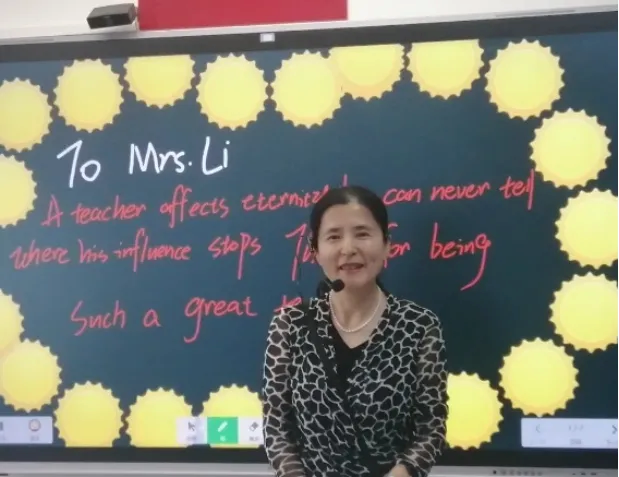 To Mrs. Li
A teacher affects eternit can never tell
where his influence stops for being
Such a great